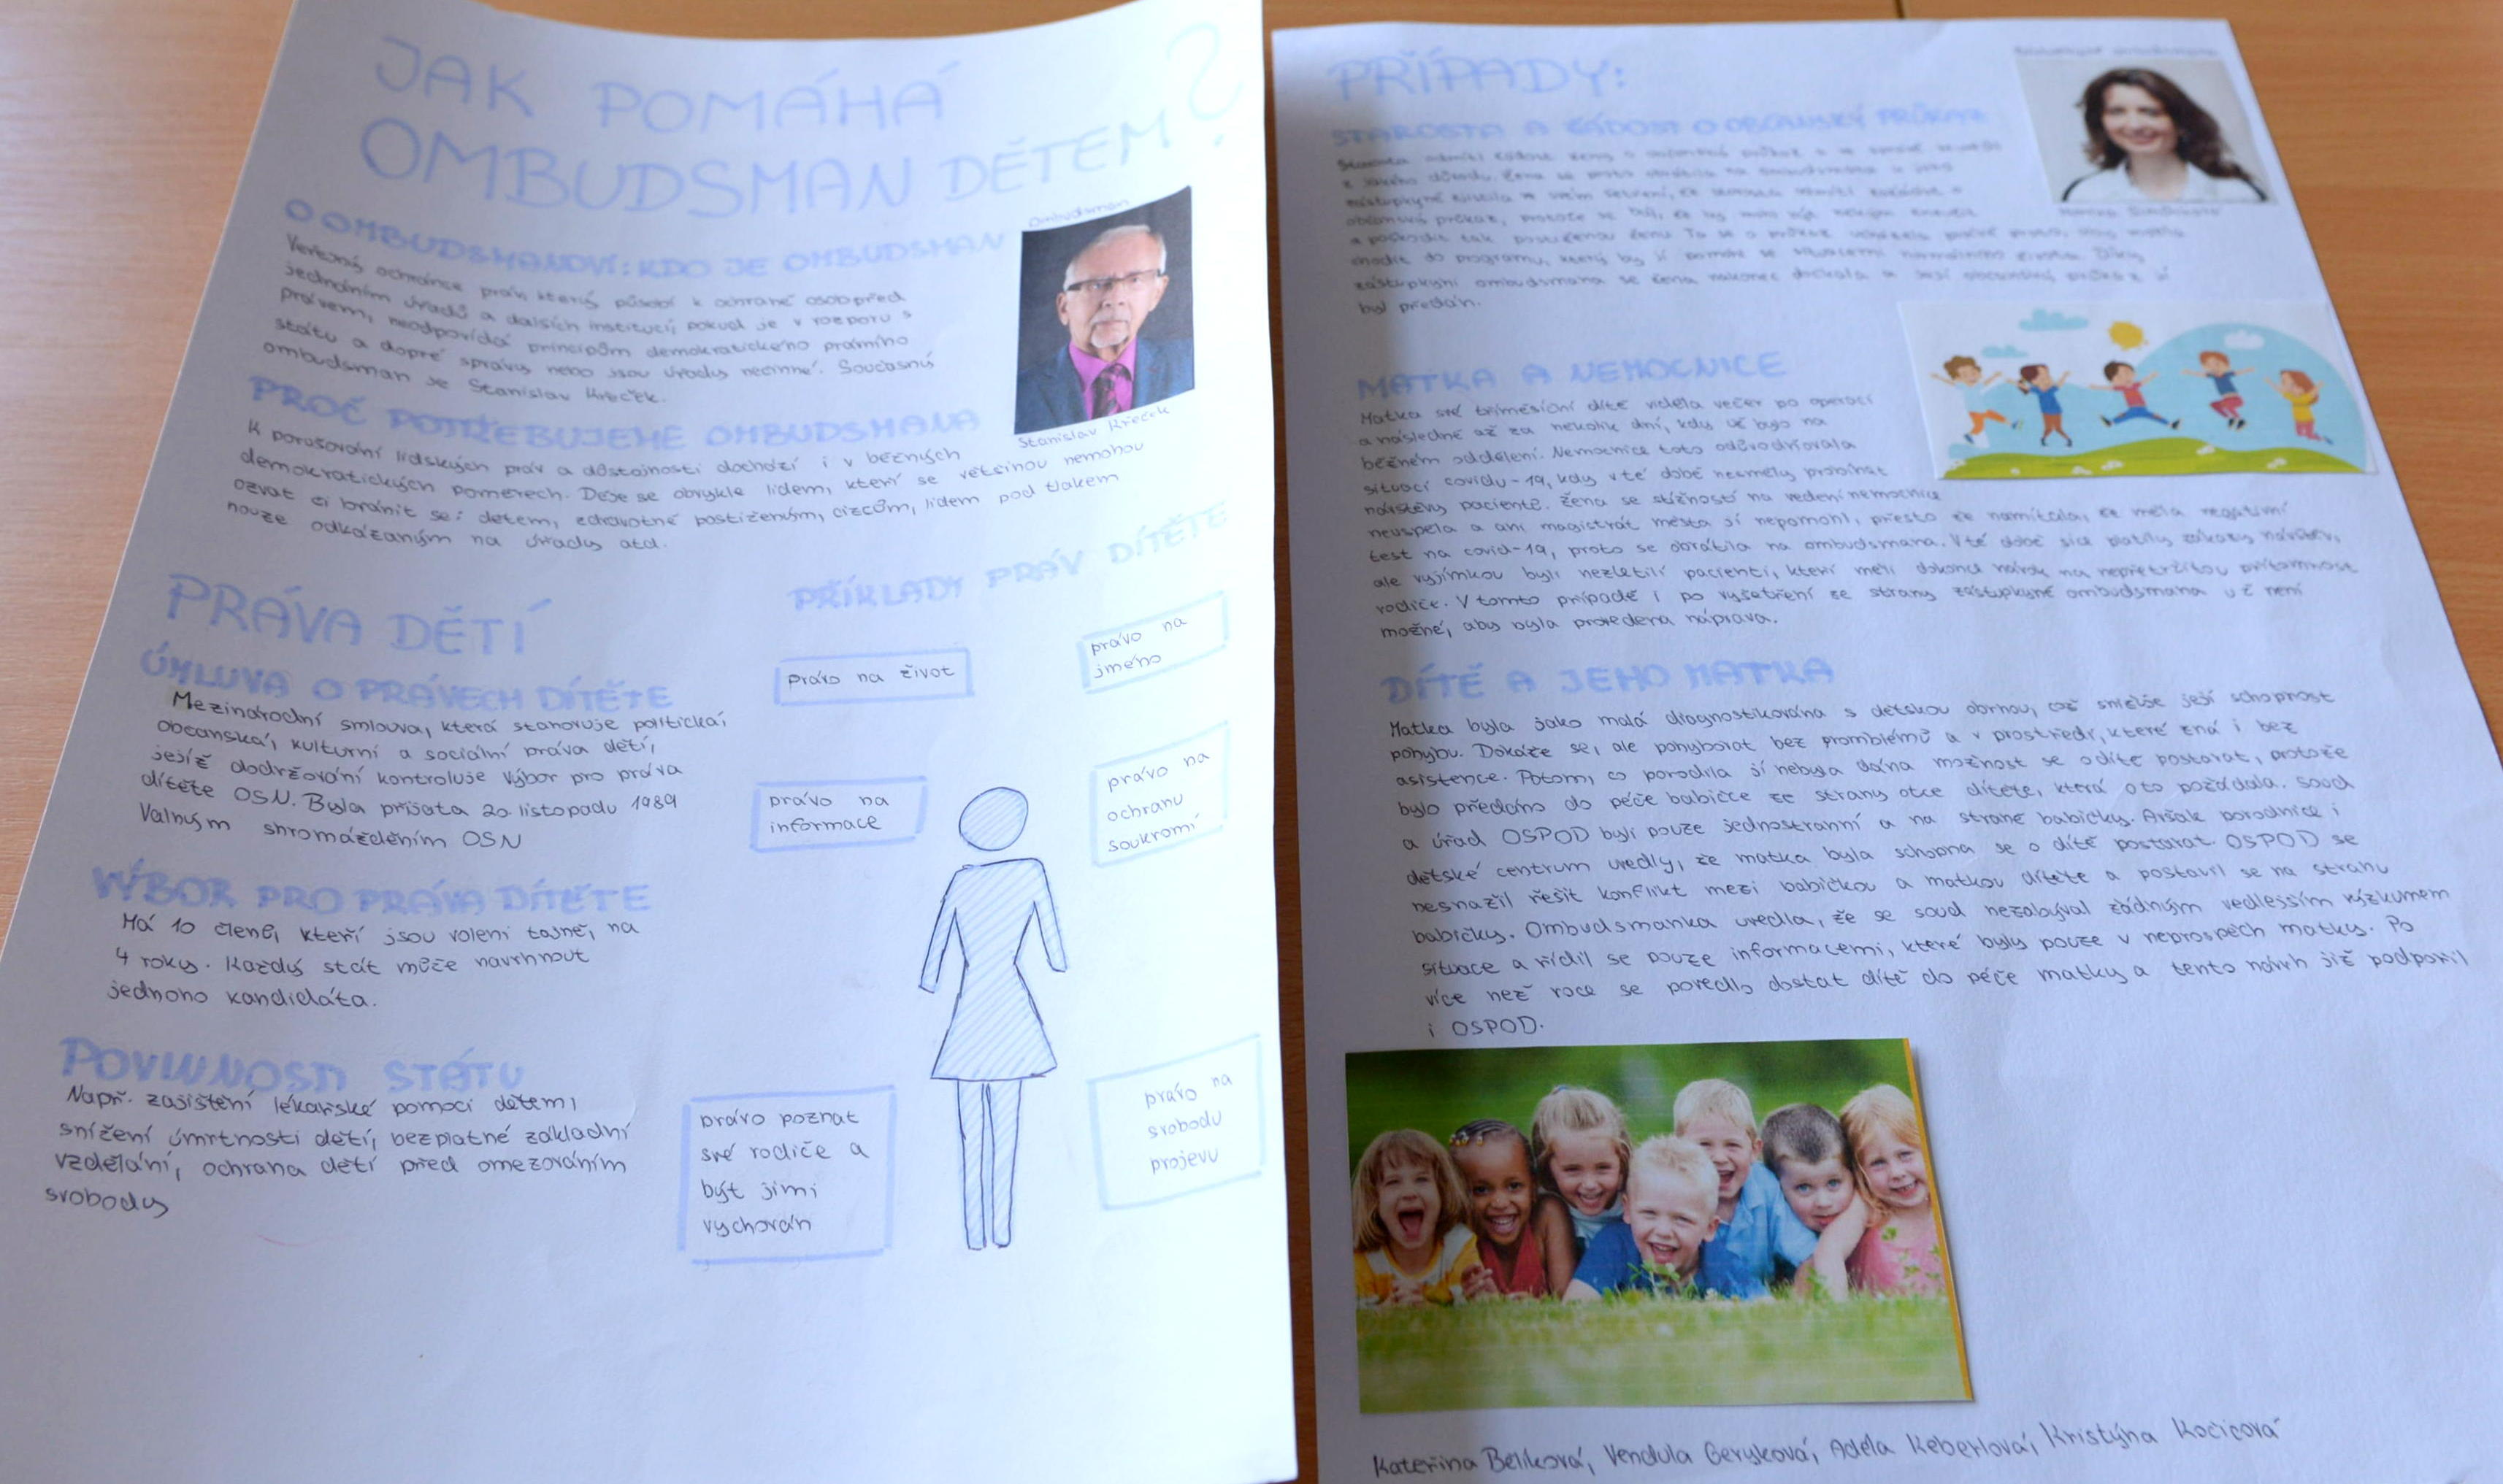 JAK POMÁHÁ
OMBUDSMAN DĚTEM?
O OMBUDSMANOVI: KDO JE OMBUDSMAN
Veřejný ochránce práv, který působí k ochraně osob před
jednáním úřadů a dalších institucí, pokud je v rozporu s
právem, neodpovídá principům demokratického právního
státu a dopré správy nebo jsou úřady nečinné. Současný
ombudsman je Stanislav Křeček.
ombudsman
Stanislav Křeček
PROČ POTŘEBUJEME OMBUDSMANA
K porušování lidských práv a důstojnosti dochází i v běžných
demokratických poměrech. Děje se obvykle lidem, kteří se většinou nemohou
ozvat či bránit se: dětem, zdravotně postiženým, cizcům, lidem pod tlakem
nouze odkázaným na úřady atd.
PRÁVA DĚTÍ
ÚMLUVA O PRÁVECH DÍTĚTE
Mezinárodní smlouva, která stanovuje politická,
občanská, kulturní a sociální práva dětí,
jejíž dodržování kontroluje Výbor pro práva
dítěte OSN. Byla přijata 20. listopadu 1989
Valným shromážděním OSN
VÝBOR PRO PRÁVA DÍTĚTE
Má 10 členů, kteří jsou voleni tajně, na
4 roky. Každý stát může navrhnout
jednoho kandidáta.
POVINNOSTI STÁTU
Např. zajištění lékařské pomoci dětem,
snížení úmrtnosti dětí, bezplatné základní
vzdělání, ochrana dětí před omezováním
svobody
PŘÍKLADY PRÁV DÍTĚTE
právo na život
právo na
jméno
právo na
informace
právo na
ochranu
soukromí
právo poznat
své rodiče a
být jimi
vychován
právo na
svobodu
projevu
PŘÍPADY:
STAROSTA A ŽÁDOST O OBČANSKÝ PRŮKAZ
Starosta odmítl žádost ženy o občanský průkaz a
z jakého důvodu. Žena se proto obrátila na ombudsmana a jeho
zástupkyně zjistila ve svém šetření, že starosta odmítl zažádat o
občanský průkaz, protože se bál, že by mohl
a poškodit tak postiženou ženu. Ta se o průkaz
chodit do programu, který by jí pomohl se situacemi normálního života. Díky
zástupkyni ombudsmana se žena nakonec dočkala a její občanský průkaz jí
byl předán.
MATKA A NEMOCNICE
Matka své tříměsíční dítě viděla večer po operaci
a následně až za několik dní, kdy už bylo na
běžném oddělení. Nemocnice toto odůvodňovala
situací covidu-19, kdy v té době nesměly probíhat
návštěvy pacientů. Žena se stížností na vedení nemocnice
neuspěla a ani magistrát města jí nepomohl, přesto že namítala, že měla negativní
test na covid-19, proto se obrátila na ombudsmana. V té době sice platily zákazy návštěv,
ale vyjímkou byli nezletilí pacienti, kteří měli dokonce nárok na nepřetržitou přítomnost
rodiče. V tomto případě i po vyšetření ze strany zástupkyně ombudsmana už není
možné, aby byla provedena náprava.
DÍTĚ A JEHO MATKA
Matka byla jako malá diagnostikována s dětskou obrnou, což snižuje její schoprost
pohybu. Dokáže se, ale pohybovat bez promblémů a v prostředí, které zná i bez
asistence. Potom, co porodila jí nebyla dána možnost se o dítě postarat, protože
bylo předáno do péče babičce ze strany otce dítěte, která o to požádala. Soud
a úřad OSPOD byli pouze jednostranní a na straně babičky. Avšak porodnice i
dětské centrum uvedly, že matka byla schopna se o dítě postarat. OSPOD se
nesnažil řešit konflikt mezi babičkou a matkou dítěte a postavil se na stranu
babičky. Ombudsmanka uvedla, že se soud nezabýval žádným vedlejším výzkumem
situace a řídil se pouze informacemi, které byly pouze v neprospěch matky. Po
více než roce se povedlo dostat dítě do péče matky a tento návrh již podpořil
i OSPOD.
Kateřina Belíková, Vendula Geryková, Adéla Keberlová, Kristýna Kočicová